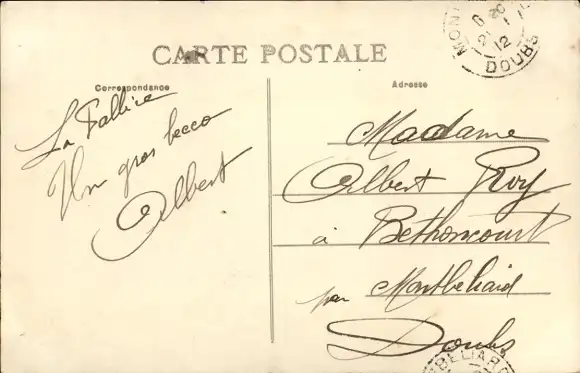 CARTE POSTALE
Correspondance
Adresse
La Pallice
Un gros becco
Albert
Madame
Albert Roy
à Bethoncourt
par Montbeliard
Doubs
MON
6 20
21 1
12
DOUBS
BELIAR